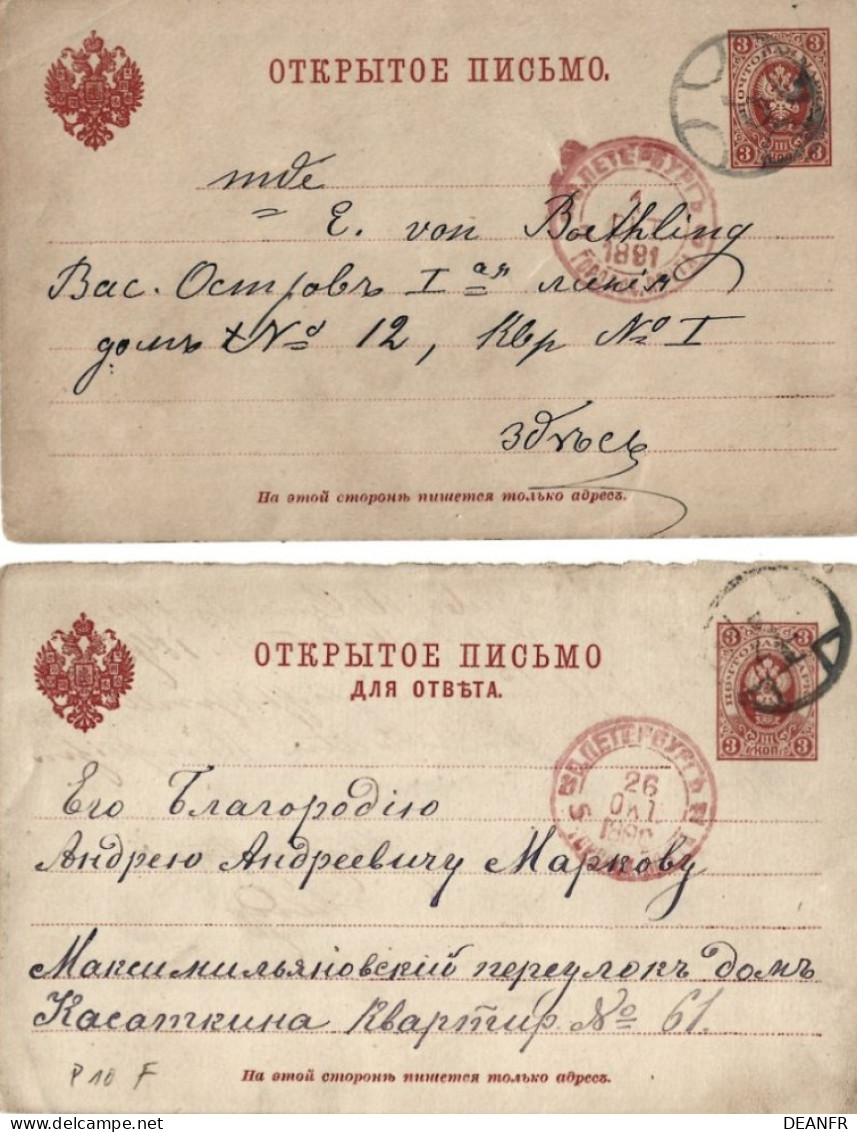 ОТКРЫТОЕ ПИСЬМО.
3 3
ПОЧТОВАЯ МАРКА
3 3
С.ПЕТЕРБУРГЪ
1
1891
тдѣ
E. von Boethling
Вас. Островъ I ая линія
домъ № 12, Квр № I
здѣсь
На этой сторонѣ пишется только адресъ.
ОТКРЫТОЕ ПИСЬМО
ДЛЯ ОТВѢТА.
3 3
ПОЧТОВАЯ МАРКА
3 КОП. 3
С.ПЕТЕРБУРГЪ
26
ОКТ.
5
Его Благородію
Андрею Андреевичу Маркову
Максимильяновскій переулокъ домъ
Касаткина Квартир № 61.
P 10 F
На этой сторонѣ пишется только адресъ.
DEANFR